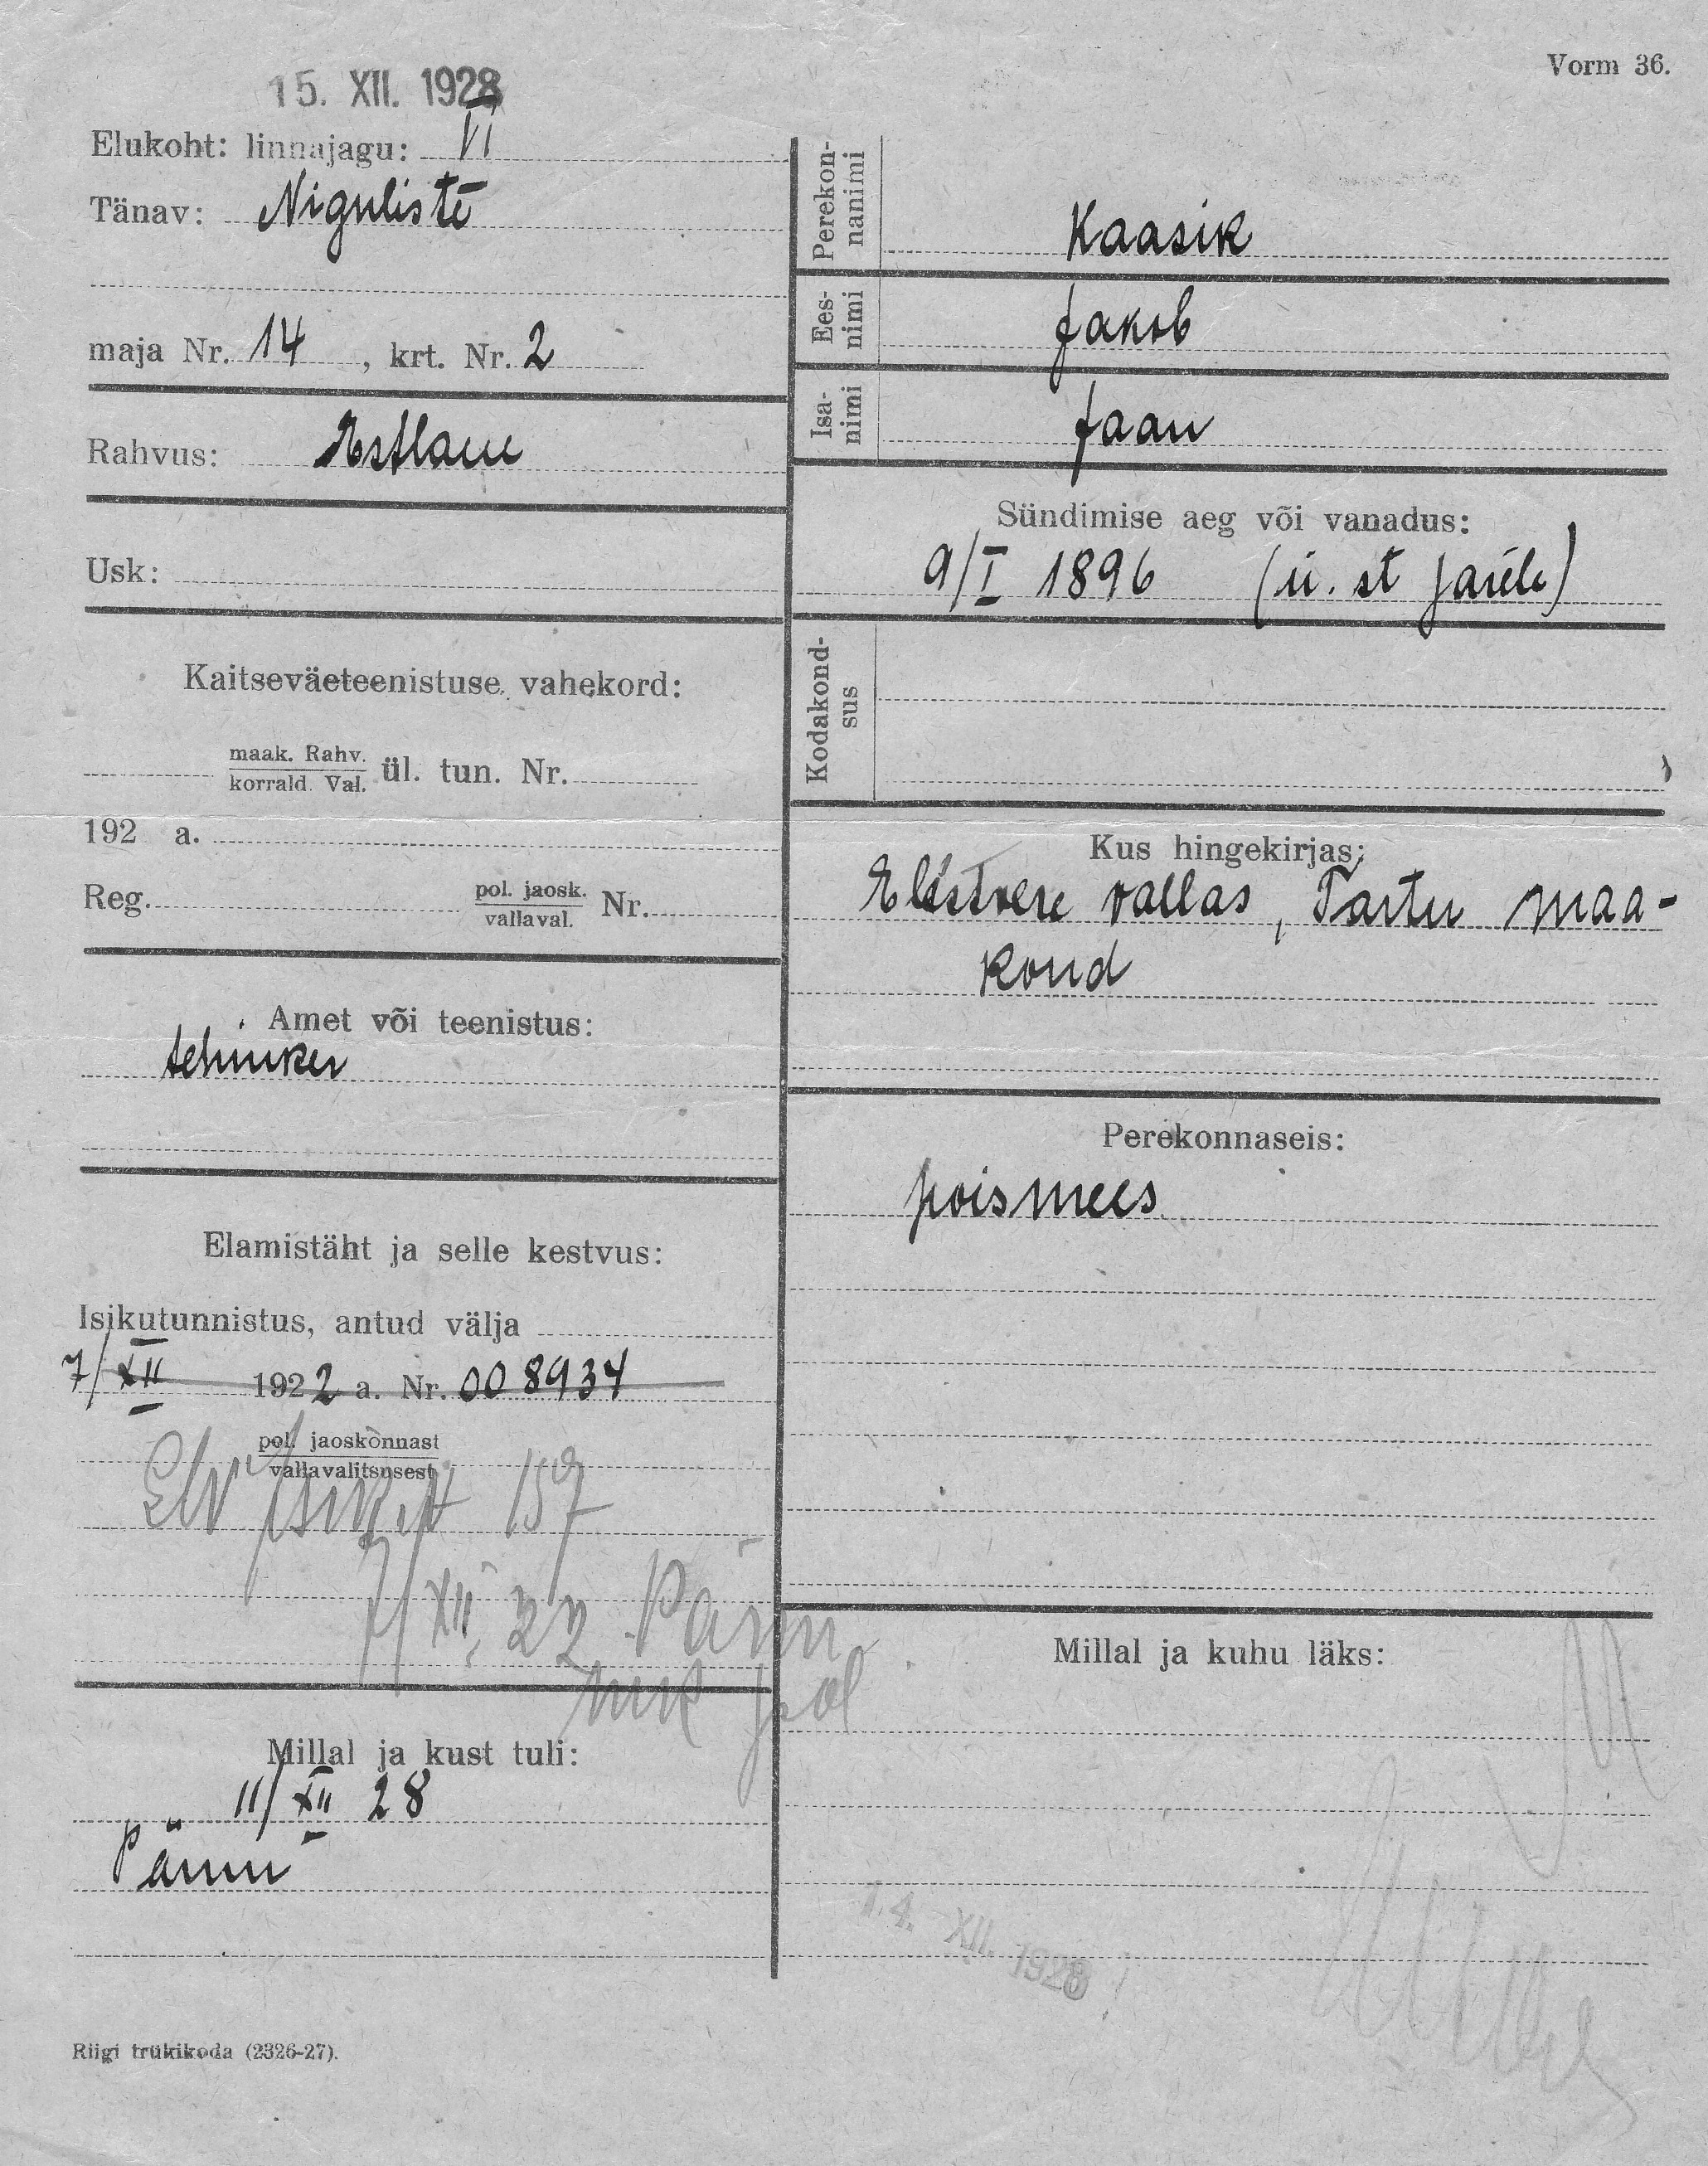 Vorm 36.
15. XII. 1928
Elukoht: linnajagu: VI
Tänav: Niguliste
maja Nr. 14, krt. Nr. 2
Rahvus: Estlane
Usk:
Kaitseväeteenistuse vahekord:
maak. Rahv.
korrald. Val. ül. tun. Nr.
192 a.
Reg. pol. jaosk.
vallaval. Nr.
Amet või teenistus:
tehniker
Elamistäht ja selle kestvus:
Isikutunnistus, antud välja
7/XII 1922 a. Nr. 008934
pol. jaoskonnast
vallavalitsusest
157
7/XII 22 Pärnu
pol
Millal ja kust tuli:
11/XII 28
Pärnu
Riigi trükikoda (2326-27).
Perekon-
nanimi Kaasik
Ees-
nimi Jakob
Isa-
nimi Jaan
Sündimise aeg või vanadus:
9/I 1896 (u. st järele)
Kodakond-
sus
Kus hingekirjas:
Elistvere vallas, Tartu maa-
kond
Perekonnaseis:
poismees
Millal ja kuhu läks:
14. XII. 1928